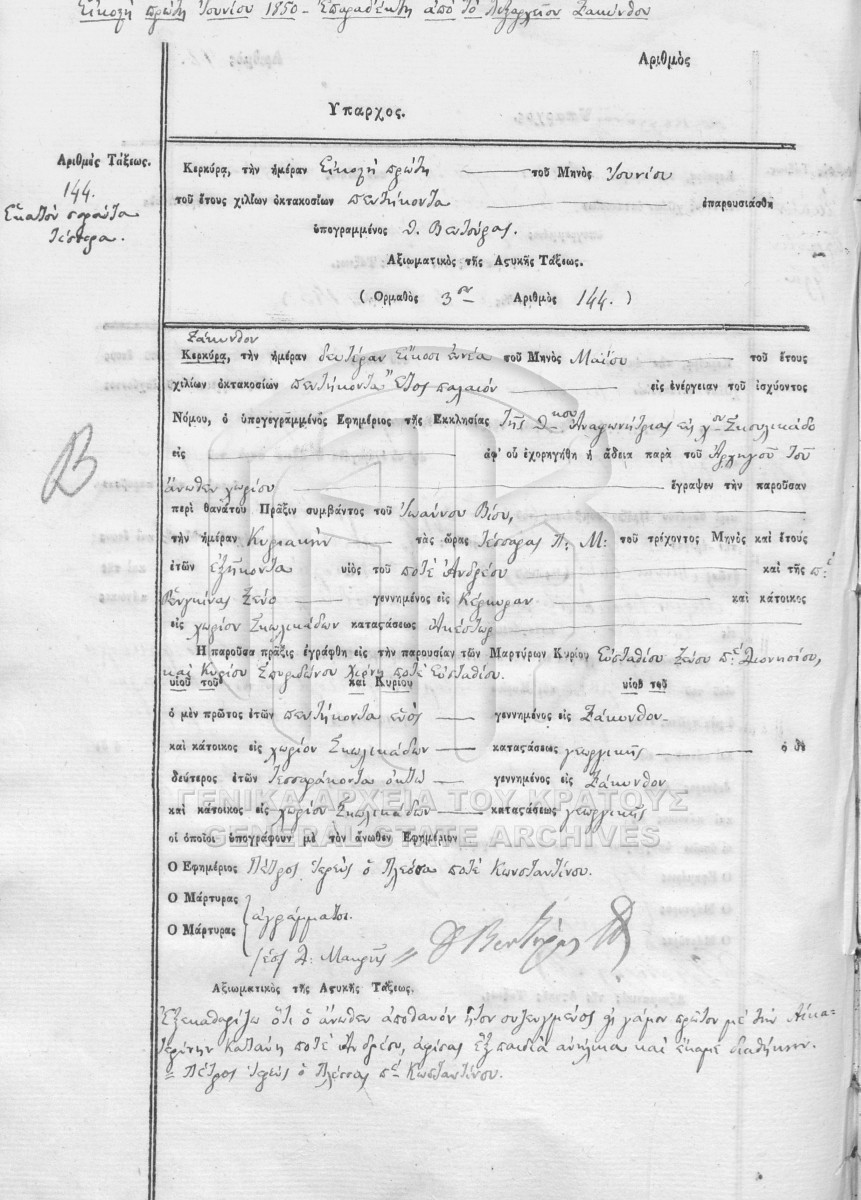 Εἰκοστῇ πρώτῃ Ἰουνίου 1850 - Ἐπαρεδέχθη ἀπὸ τὸ Ληξαρχεῖον Ζακύνθου
Αριθμὸς
Υπαρχος.
Αριθμὸς Τάξεως.
144.
Ἑκατὸν σαράντα
τέσσερα.
Κερκύρᾳ, τὴν ἡμέραν Εἰκοστῇ πρώτῃ τοῦ Μηνὸς Ἰουνίου
τοῦ ἔτους χιλίων ὀκτακοσίων πεντήκοντα ἐπαρουσιάσθη
ὑπογραμμένος
Αξιωματικὸς τῆς Αστυκῆς Τάξεως.
( Ορμαθὸς 3ος Αριθμὸς 144. )
Ζάκυνθον
Κερκύρᾳ, τὴν ἡμέραν δευτέραν εἴκοσι ἐννέα τοῦ Μηνὸς Μαΐου τοῦ ἔτους
χιλίων ὀκτακοσίων πεντήκοντα ἔτος παλαιὸν εἰς ἐνέργειαν τοῦ ἰσχύοντος
Νόμου, ὁ ὑπογεγραμμένος Εφημέριος τῆς Εκκλησίας τῆς Θκου Ἀναφωνήτριας εἰς χον Σκουλικάδο
εἰς ἀφ' οὗ ἐχορηγήθη ἡ ἄδεια παρὰ τοῦ Ἀρχηγοῦ τοῦ
ἄνωθεν χωρίου ἔγραψεν τὴν παροῦσαν
περὶ θανάτου Πράξιν συμβάντος τοῦ Ἰωάννου Βίσου,
τὴν ἡμέραν Κυριακὴν τὰς ὥρας τέσσαρας Π: Μ: τοῦ τρέχοντος Μηνὸς καὶ ἔτους
ἐτῶν ἑξήκοντα υἱὸς τοῦ ποτὲ Ἀνδρέου καὶ τῆς πέ
Ρεγγίνας Ξένο γεννημένος εἰς Κέρκυραν καὶ κάτοικος
εἰς χωρίον Σκωλικάδων καταστάσεως
Η παροῦσα πρᾶξις ἐγράφθη εἰς τὴν παρουσίαν τῶν Μαρτύρων Κυρίου Εὐσταθίου πέ Διονησίου,
καὶ Κυρίου Σπυρίδωνος ποτὲ Εὐσταθίου.
υἱοῦ τοῦ καὶ Κυρίου υἱοῦ τοῦ
ὁ μὲν πρῶτος ἐτῶν πεντήκοντα ἑνὸς γεννημένος εἰς Ζάκυνθον
καὶ κάτοικος εἰς χωρίον Σκωλικάδων καταστάσεως γεωργικῆς ὁ δὲ
δεύτερος ἐτῶν τεσσαράκοντα ὀκτὼ γεννημένος εἰς Ζάκυνθον
καὶ κάτοικος εἰς χωρίον Σκωλικάδων καταστάσεως γεωργικῆς
ΓΕΝΙΚΑ ΑΡΧΕΙΑ ΤΟΥ ΚΡΑΤΟΥΣ
GENERAL STATE ARCHIVES
οἱ ὁποῖοι ὑπογράφουν μὲ τὸν ἄνωθεν Εφημέριον
Ο Εφημέριος Πέτρος Ἱερεὺς ὁ Πλέσσα ποτὲ Κωνσταντίνου.
Ο Μάρτυρας
ἀγράμματοι.
Ο Μάρτυρας
Αξιωματικὸς τῆς Αστυκῆς Τάξεως.
Β
Ἐξεκαθαρίζω ὅτι ὁ ἄνωθεν ἀποθανὸν ἦτον συζευγμένος εἰς γάμον πρῶτον μὲ τὴν Αἰκα-
τερίνην ποτὲ Ἀνδρέου, ἀφίσας ἓξ παιδιὰ ἀνήλικα καὶ ἔκαμε διαθήκην.
= Πέτρος Ἱερεὺς ὁ Πλέσσας πέ Κωσταντίνου.